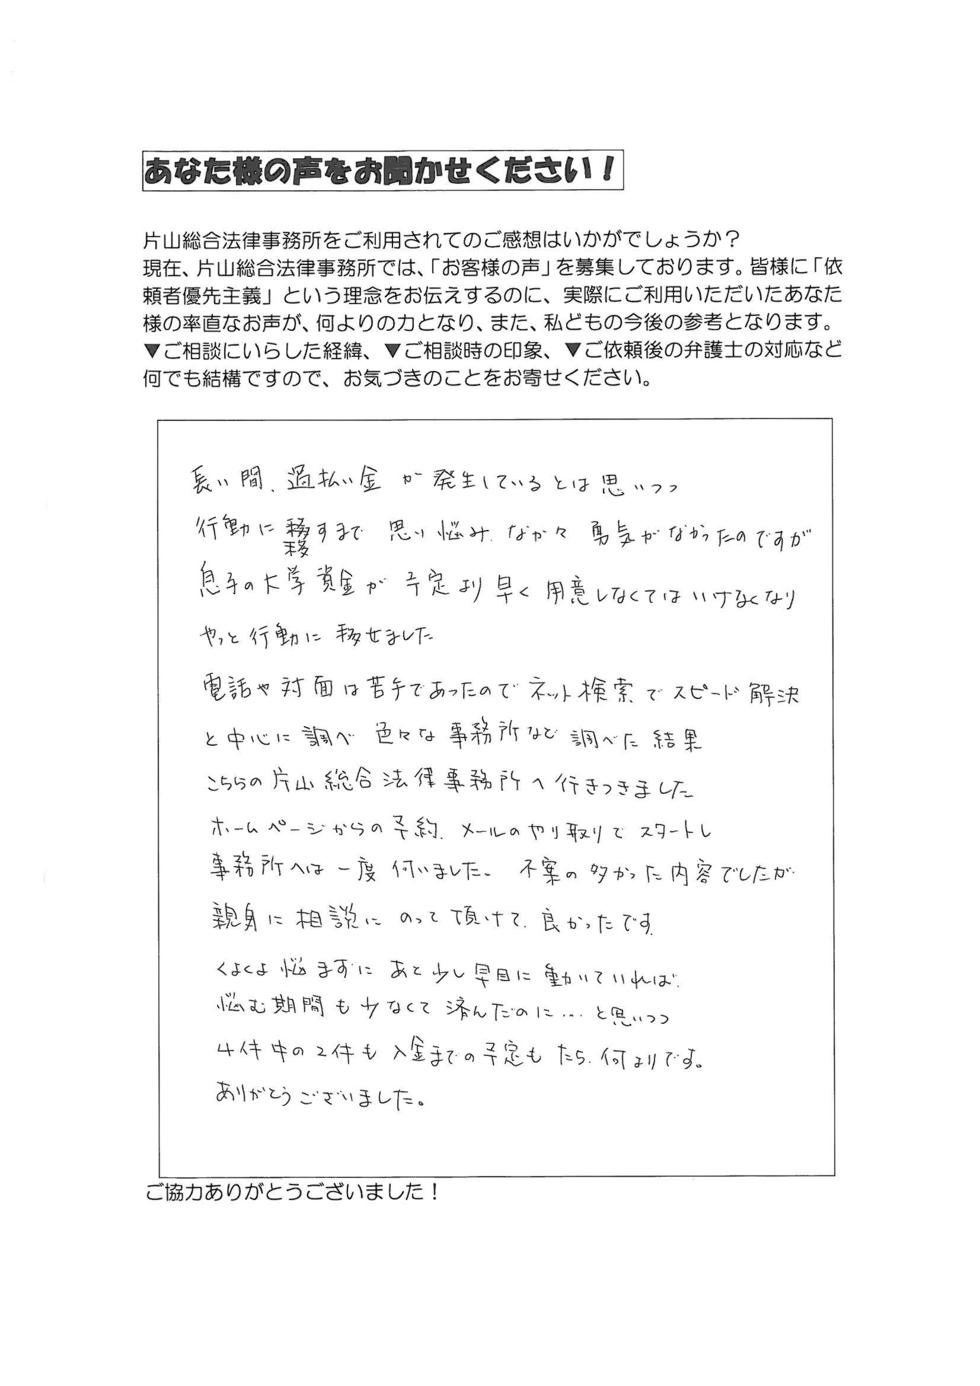 あなた様の声をお聞かせください！
片山総合法律事務所をご利用されてのご感想はいかがでしょうか？
現在、片山総合法律事務所では、「お客様の声」を募集しております。皆様に「依
頼者優先主義」という理念をお伝えするのに、実際にご利用いただいたあなた
様の率直なお声が、何よりの力となり、また、私どもの今後の参考となります。
▼ご相談にいらした経緯、▼ご相談時の印象、▼ご依頼後の弁護士の対応など
何でも結構ですので、お気づきのことをお寄せください。
長い間、過払い金が発生しているとは思いつつ
行動に移すまで 思い悩み、なか々 勇気がなかったのですが
移
息子の大学資金が予定より早く用意しなくてはいけなくなり
やっと行動に移せました
電話や対面は苦手であったのでネット検索でスピード解決
と中心に調べ 色々な事務所など調べた結果
こちらの片山総合法律事務所へ行きつきました
ホームページからの予約、メールのやり取りでスタートし
事務所へは一度伺いました。不案の多かった内容でしたが
親身に相談にのって頂けて、良かったです
くよくよ悩まずに あと少し早目に動いていれば、
悩む期間も少なくて済んだのに…と思いつつ
4件中の2件も入金までの予定もたち、何よりです。
ありがとうございました。
ご協力ありがとうございました！